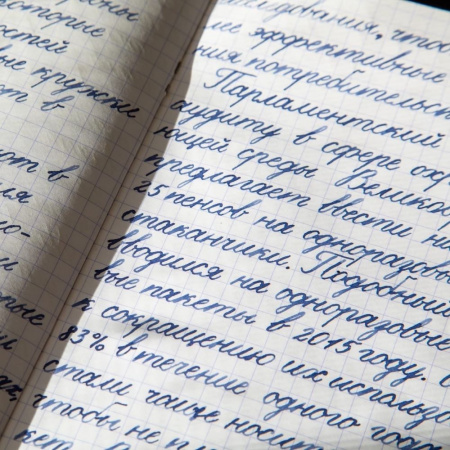 оторые
остей
вые кружки
ют в
ют в
следования, чтоб
лее эффективные
ния потребительск
Парламентский
аудиту в сфере охр
ющей среды Великоб
предлагает ввести на
25 пенсов на одноразовы
стаканчики. Подобный
вводился на одноразовые
вые пакеты в 2015 году.
к сокращению их использо
83% в течение одного года
стали чаще носит
чтобы не п
кет